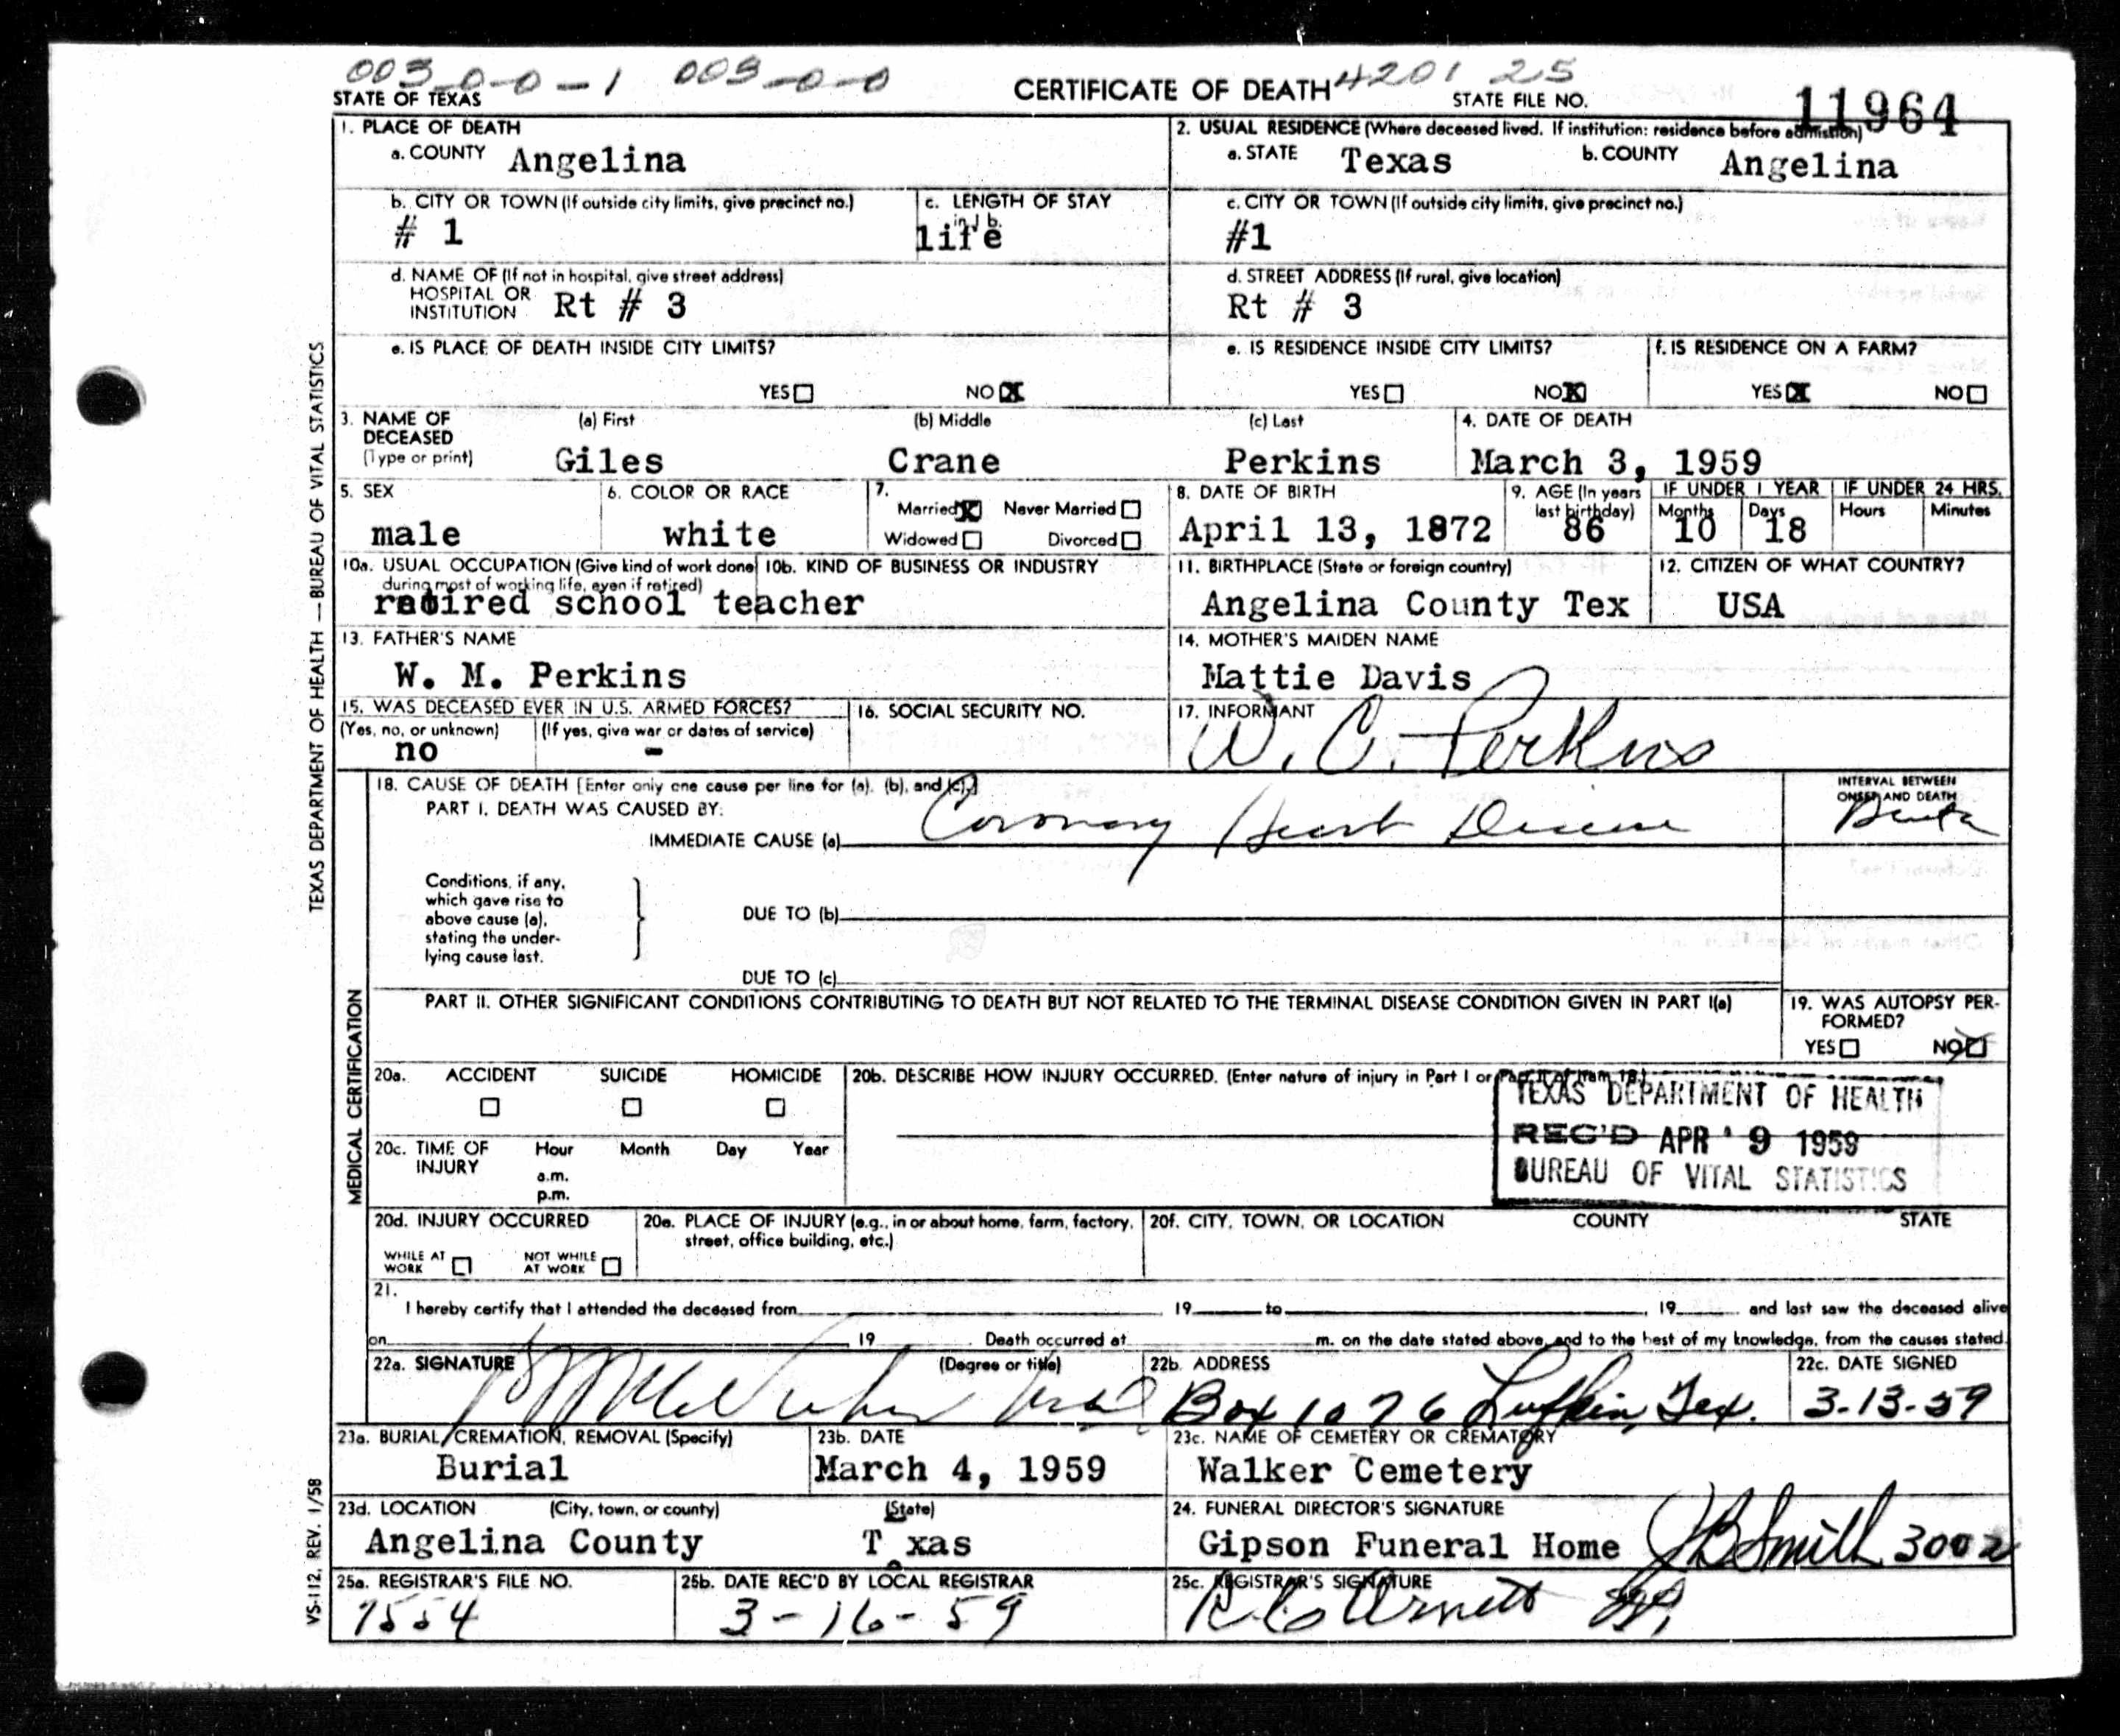 003-0-0-1 003-0-0 CERTIFICATE OF DEATH 4201 25
STATE OF TEXAS STATE FILE NO. 11964
1. PLACE OF DEATH
a. COUNTY Angelina
2. USUAL RESIDENCE (Where deceased lived. If institution: residence before admission)
a. STATE Texas b. COUNTY Angelina
b. CITY OR TOWN (If outside city limits, give precinct no.)
# 1
c. LENGTH OF STAY
in 1 b.
life
c. CITY OR TOWN (If outside city limits, give precinct no.)
#1
d. NAME OF (If not in hospital, give street address)
HOSPITAL OR
INSTITUTION Rt # 3
d. STREET ADDRESS (If rural, give location)
Rt # 3
e. IS PLACE OF DEATH INSIDE CITY LIMITS?
YES NO X
e. IS RESIDENCE INSIDE CITY LIMITS?
YES NO X
f. IS RESIDENCE ON A FARM?
YES X NO
3. NAME OF
DECEASED
(Type or print)
(a) First (b) Middle (c) Last
Giles Crane Perkins
4. DATE OF DEATH
March 3, 1959
5. SEX
male
6. COLOR OR RACE
white
7.
Married X Never Married
Widowed Divorced
8. DATE OF BIRTH
April 13, 1872
9. AGE (In years
last birthday)
86
IF UNDER 1 YEAR
Months Days
10 18
IF UNDER 24 HRS.
Hours Minutes
10a. USUAL OCCUPATION (Give kind of work done
during most of working life, even if retired)
10b. KIND OF BUSINESS OR INDUSTRY
retired school teacher
11. BIRTHPLACE (State or foreign country)
Angelina County Tex
12. CITIZEN OF WHAT COUNTRY?
USA
13. FATHER'S NAME
W. M. Perkins
14. MOTHER'S MAIDEN NAME
Mattie Davis
15. WAS DECEASED EVER IN U.S. ARMED FORCES?
(Yes, no, or unknown) (If yes, give war or dates of service)
no -
16. SOCIAL SECURITY NO.
17. INFORMANT
W. C. Perkins
18. CAUSE OF DEATH [Enter only one cause per line for (a), (b), and (c).]
PART I. DEATH WAS CAUSED BY:
IMMEDIATE CAUSE (a) Coronary Heart Disease
INTERVAL BETWEEN
ONSET AND DEATH
Conditions, if any,
which gave rise to
above cause (a),
stating the under-
lying cause last.
DUE TO (b)
DUE TO (c)
PART II. OTHER SIGNIFICANT CONDITIONS CONTRIBUTING TO DEATH BUT NOT RELATED TO THE TERMINAL DISEASE CONDITION GIVEN IN PART I(a)
19. WAS AUTOPSY PER-
FORMED?
YES NO X
20a. ACCIDENT SUICIDE HOMICIDE
20b. DESCRIBE HOW INJURY OCCURRED. (Enter nature of injury in Part I or Part II of item 18.)
TEXAS DEPARTMENT OF HEALTH
REC'D APR 9 1959
BUREAU OF VITAL STATISTICS
20c. TIME OF
INJURY
Hour Month Day Year
a.m.
p.m.
20d. INJURY OCCURRED
WHILE AT
WORK
NOT WHILE
AT WORK
20e. PLACE OF INJURY (e.g., in or about home, farm, factory,
street, office building, etc.)
20f. CITY, TOWN, OR LOCATION COUNTY STATE
21.
I hereby certify that I attended the deceased from 19 to , 19 and last saw the deceased alive
on 19 . Death occurred at m. on the date stated above, and to the best of my knowledge, from the causes stated.
22a. SIGNATURE (Degree or title)
22b. ADDRESS
Box 1076 Lufkin, Tex.
22c. DATE SIGNED
3-13-59
23a. BURIAL, CREMATION, REMOVAL (Specify)
Burial
23b. DATE
March 4, 1959
23c. NAME OF CEMETERY OR CREMATORY
Walker Cemetery
23d. LOCATION (City, town, or county) (State)
Angelina County Texas
24. FUNERAL DIRECTOR'S SIGNATURE
Gipson Funeral Home JB Smith 3002
25a. REGISTRAR'S FILE NO.
7554
25b. DATE REC'D BY LOCAL REGISTRAR
3-16-59
25c. REGISTRAR'S SIGNATURE
TEXAS DEPARTMENT OF HEALTH — BUREAU OF VITAL STATISTICS
MEDICAL CERTIFICATION
VS-112, REV. 1/58